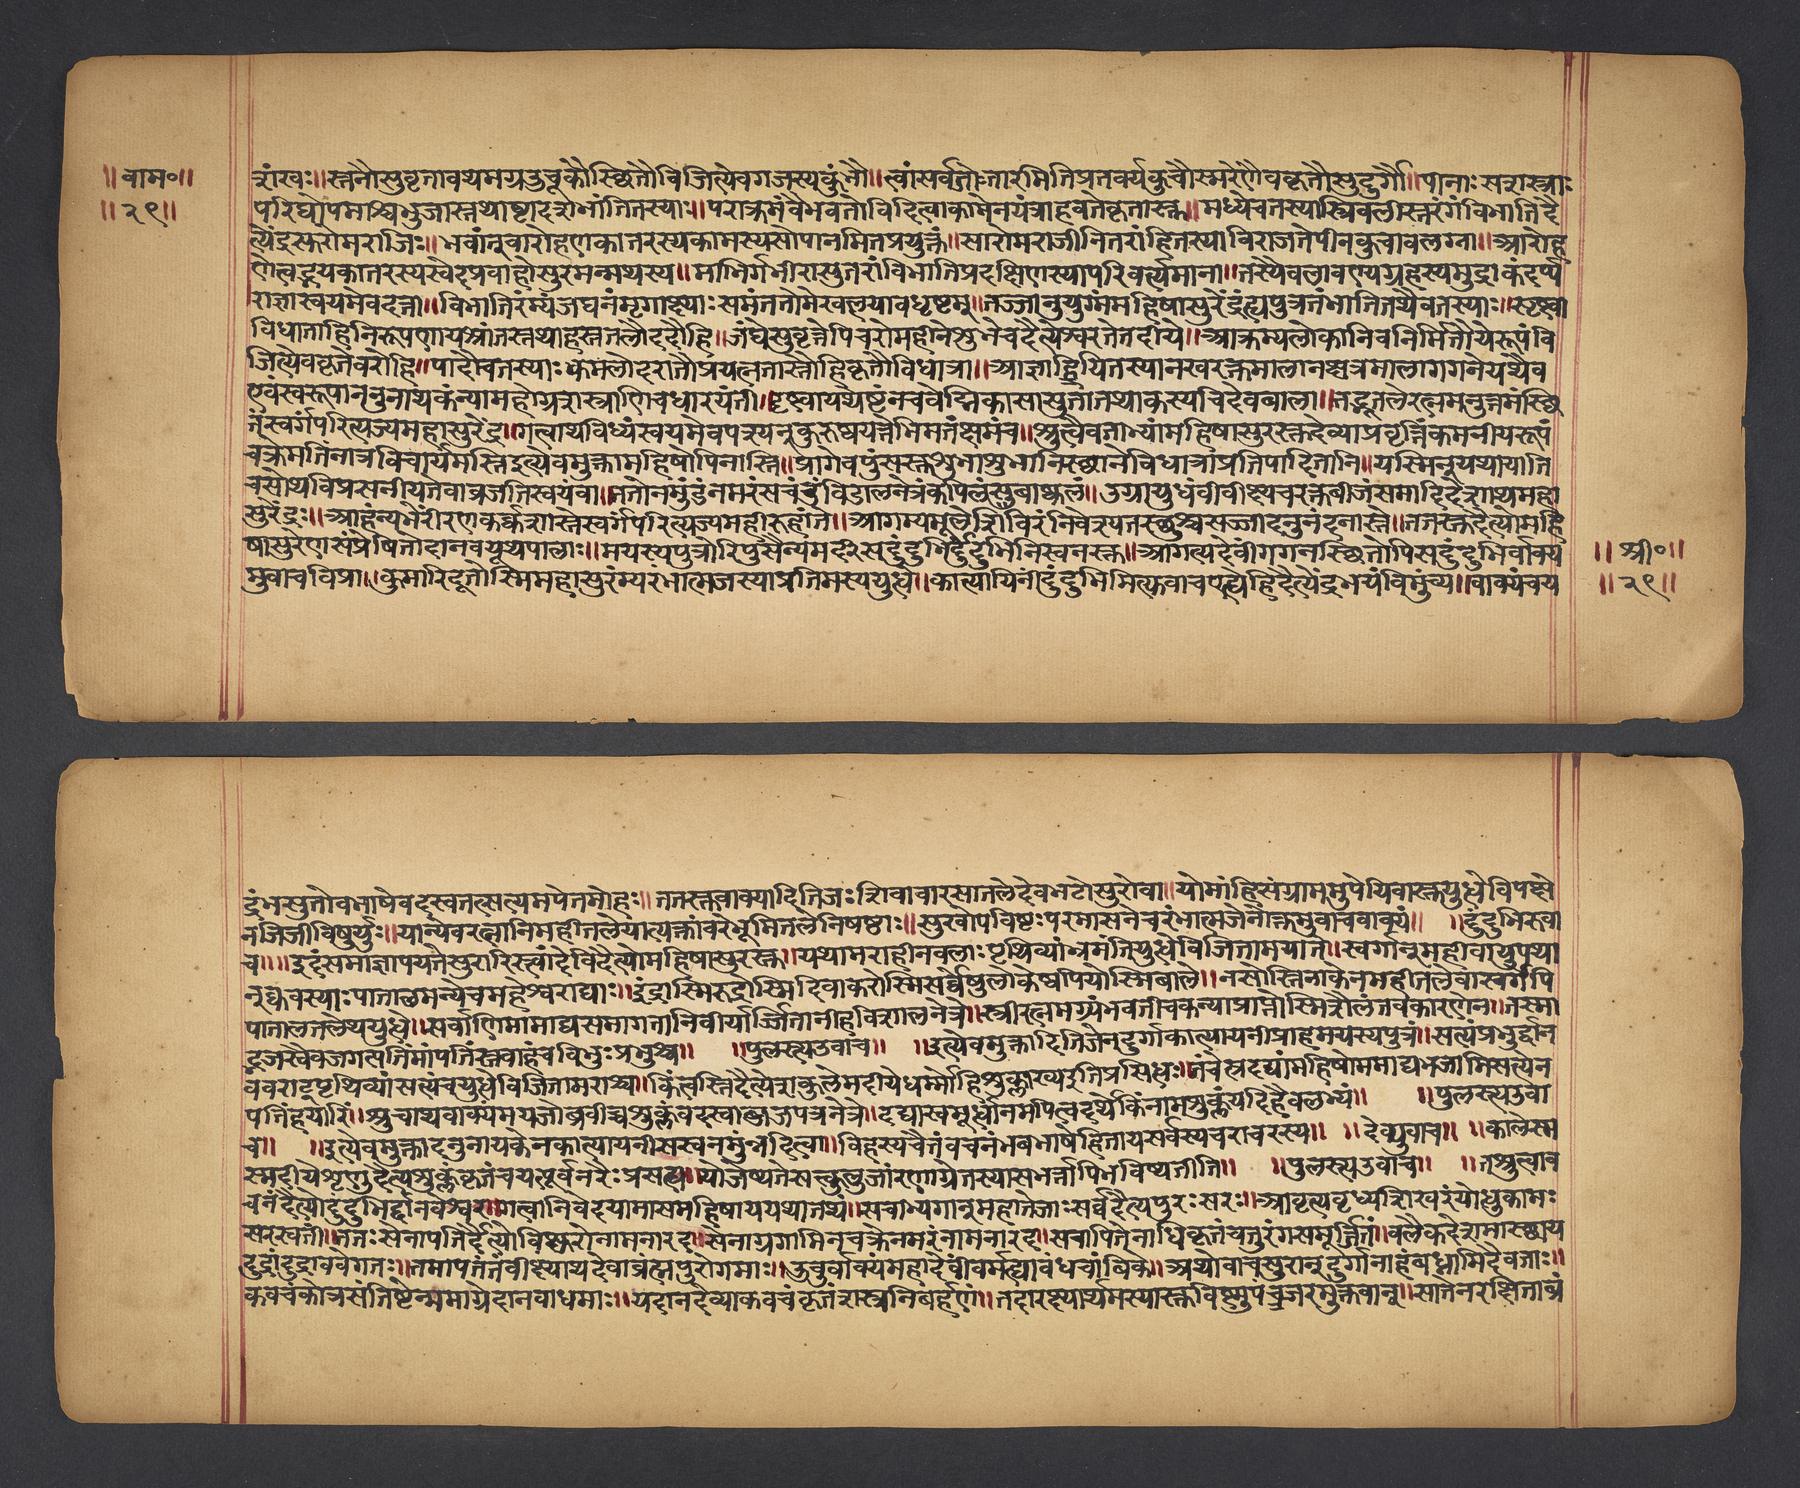 ॥वाम॰॥
॥२९॥
शंखः॥स्तनौसुवृत्तावथमग्नचूचुकौस्थितौविजित्येवगजस्यकुंभौ॥त्वांसर्ववीरोमारमितिप्रतर्क्यकुचौस्मरेणैवकृतौसुदुर्गौ॥पीनाःसशस्त्राः
परिघोपमाश्चभुजास्तथाष्टादशभांतितस्याः॥पराक्रमंवैभवतोविदित्वाकामेनयंत्राइवतेकृतास्तु॥मध्यंचतस्यास्त्रिवलीतरंगंविभातिदै
त्येंद्रसुरोमराजिः॥भयातुरारोहणकातरस्यकामस्यसोपानमिवप्रयुक्तं॥सारोमराजीनितरांहितस्याविराजतेपीनकुचावलग्ना॥आरोह
णेत्वद्भयकातरस्यस्वेदप्रवाहोसुरमन्मथस्य॥नाभिर्गभीरासुतरांविभातिप्रदक्षिणास्यापरिवर्त्तमाना॥तस्यैवलावण्यगृहस्यमुद्राकंदर्प्प
राज्ञास्वयमेवदत्ता॥विभातिरंम्यंजघनंमृगाक्ष्याःसमंततोमेखलयावधृष्टम्॥तज्जानुयुग्मंमहिषासुरेंद्र
विधाताहिनिरूपणाय॥जंघेसुवृत्तेपिचरोमहीनेशुभेचदैत्येश्वरतेतदीये॥आक्रम्यलोकानिवनिर्मितौयेरूपंवि
जित्येवकृतेवरोहि॥पादौचतस्याःकमलोदराभौप्रयत्नतस्तौहिकृतौविधात्रा॥आज्ञापितस्यानखरत्नमालानक्षत्रमालागगनेयथैव
एवंस्वरूपादनुनाथकंन्यामहोग्रशस्त्राणिचधारयंती॥दृष्ट्वायथेष्टंनचवेद्मिकासासुतातथाकस्यचिदेवबाला॥तद्भूतलेरत्नमनुत्तमंस्थि
तंस्वर्गंपरित्यज्यमहासुरेंद्र॥गत्वाथविंध्यंस्वयमेवपश्यकुरुष्वयत्तेभिमतंक्षमंच॥श्रुत्वैवताभ्यांमहिषासुरस्तुदेव्याप्रवृत्तिंकमनीयरूपां
चक्रेमतिंनात्रविचार्यमस्तिइत्येवमुक्त्वामहिषोपिनास्ति॥प्रागेवपुंसस्तुशुभाशुभानिस्थानेविधात्राप्रतिपादितानि॥यस्मिन्यथायाति
चसोथविप्रसनीयतेवाव्रजतिस्वयंवा॥ततोनुमुंडंनमरंसचंडंविडालनेत्रंकपिलंसुबाष्कलं॥उग्रायुधंवीवीक्ष्यचरक्तबीजंसमादिदेशाथमहा
सुरेंद्रः॥आहत्यभेरीरणकर्कशास्तेस्वर्गंपरित्यज्यमहीरुहांते॥आगम्यमूलेशिविरंनिवेश्यतस्थुश्चसज्जादनुनंदनास्ते॥ततस्तुदैत्योमहि
षासुरेणसंप्रेषितोदानवयूथपालाः॥मयस्यपुत्रोरिपुसैन्यमर्दीसदुंदुभिर्दुंदुभिनिस्वनस्तु॥आगत्यदेवींगगनस्थितोपिसदुंदुभिर्वाक्य
मुवाचविप्रा॥कुमारिदूतोस्मिमहासुरंम्यरंभात्मजस्याप्रतिमस्ययुद्धे॥कात्यायिनींदुंदुभिमित्युवाचएह्येहिदैत्येंद्रभयंविमुंच्य॥वाक्यंचय
॥श्री॰॥
॥२९॥
द्रंभसुतोवभाषेवदस्वतत्सत्यमपेतमोहः॥ततस्तुवाक्यादितिजःशिवायास्तलेदेवभटोसुरोवा॥योमांहिसंग्राममुपेयिवांस्तुयुद्धेविपक्षो
नजिजीविषुर्युः॥यान्येवरत्नानिमहीतलेयात्यक्त्वांवरंभूमितलेनिषष्ठाः॥सुखोपविष्टःपरमासनेचरंभात्मजेनोक्तमुवाचवाक्यं॥ ॥दुंदुभिरुवा
च॥॥इदंसमाज्ञापयतेसुरारिस्त्वांदेविदैत्योमहिषासुरस्तु॥यथामराहीनबलाःपृथिव्यांभ्रमंतियुद्धेविजितामयाते॥स्वर्गानुमहीवायुपथा
नुकैवस्याःपातालमन्येचमहेश्वराद्याः॥इंद्रोस्मिरुद्रोस्मिदिवाकरोस्मिसर्वेषुलोकेष्वपियोस्मिबाले॥नसोस्तिनाकेनमहीतलेवास्वर्गेपि
पातालतलेथयुद्धे॥सर्वाणिमामाद्यसमागतानिवीर्यार्जितानीहविशालनेत्रे॥स्त्रीरत्नमग्र्यंभवतीचकन्याप्राप्तोस्मिशैलंतवकारणेन॥तस्मा
द्भजस्वैवजगत्पतिंमांपतिस्तवाहंचविभुःप्रभुश्च॥ ॥पुलस्त्यउवाच॥ ॥इत्येवमुक्तादितिजेनदुर्गाकात्यायनीप्राहमयस्यपुत्रं॥सत्यंप्रभुर्द्दान
ववराट्पृथिव्यांसत्यंचयुद्धेविजितामराश्च॥किंत्वस्तिदैत्येशकुलेमदीयेधर्म्मोहिशुल्काख्यइतिप्रसिद्धः॥तंचेत्प्रदद्यांमहिषोममाद्यभजामिसत्येन
पतिंहयारिं॥श्रुत्वाथवाक्यंमयजोब्रवीच्चशुल्कंवदस्वांबुजपत्रनेत्रे॥दद्यात्स्वमूर्द्धानमपित्वदर्थेकिंनामशुल्कंयदिहैवलभ्यं॥ ॥पुलस्त्यउवा
च॥ ॥इत्येवमुक्तादनुनायकेनकात्यायनीसस्वनमुन्नदित्वा॥विहस्यचैतंवचनंबभाषेहितायसर्वस्यचराचरस्य॥ ॥देव्युवाच॥ ॥कुलेस्म
स्मदीयेशृणुदैत्यशुल्कंकृतंचयत्पूर्वनरैःप्रसह्य॥योजेष्यतेसत्कुलजांरणाग्रेतस्यासभर्त्तापिभविष्यतीति॥ ॥पुलस्त्यउवाच॥ ॥तच्छ्रुत्वाव
चनंदैत्योदुंदुभिर्द्दानवेश्वरः॥गत्वानिवेदयामासमहिषाययथातथं॥सचाभ्यगान्महातेजाःसर्वदैत्यपुरःसरः॥आवृत्यविंध्यशिखरंयोद्धुकामः
सरस्वतीं॥ततःसेनापतिर्दैत्योचिक्षुरोनामनारद॥सेनाग्रगामिनंचक्रेनमरंनामनारद॥सचापितेनाधिकृतंचतुरंगसमूर्जितं॥बलैकदेशमास्थाय
दुर्गांदुद्राववेगतः॥तमापतंतंवीक्ष्याथदेवाब्रह्मपुरोगमाः॥ऊचुर्वाक्यंमहादेवींवर्महाबंधचांबिके॥अथोवाचसुरान्दुर्गानाहंबध्नामिदेवताः॥
कवचंकोत्रसंतिष्ठेन्ममाग्रेदानवाधमाः॥यदानदेव्याकवचंकृतंशस्त्रनिबर्हणं॥तदारक्षार्थमस्यास्तुविष्णुपंजरमुक्तवान्॥सातेनरक्षिताब्रं